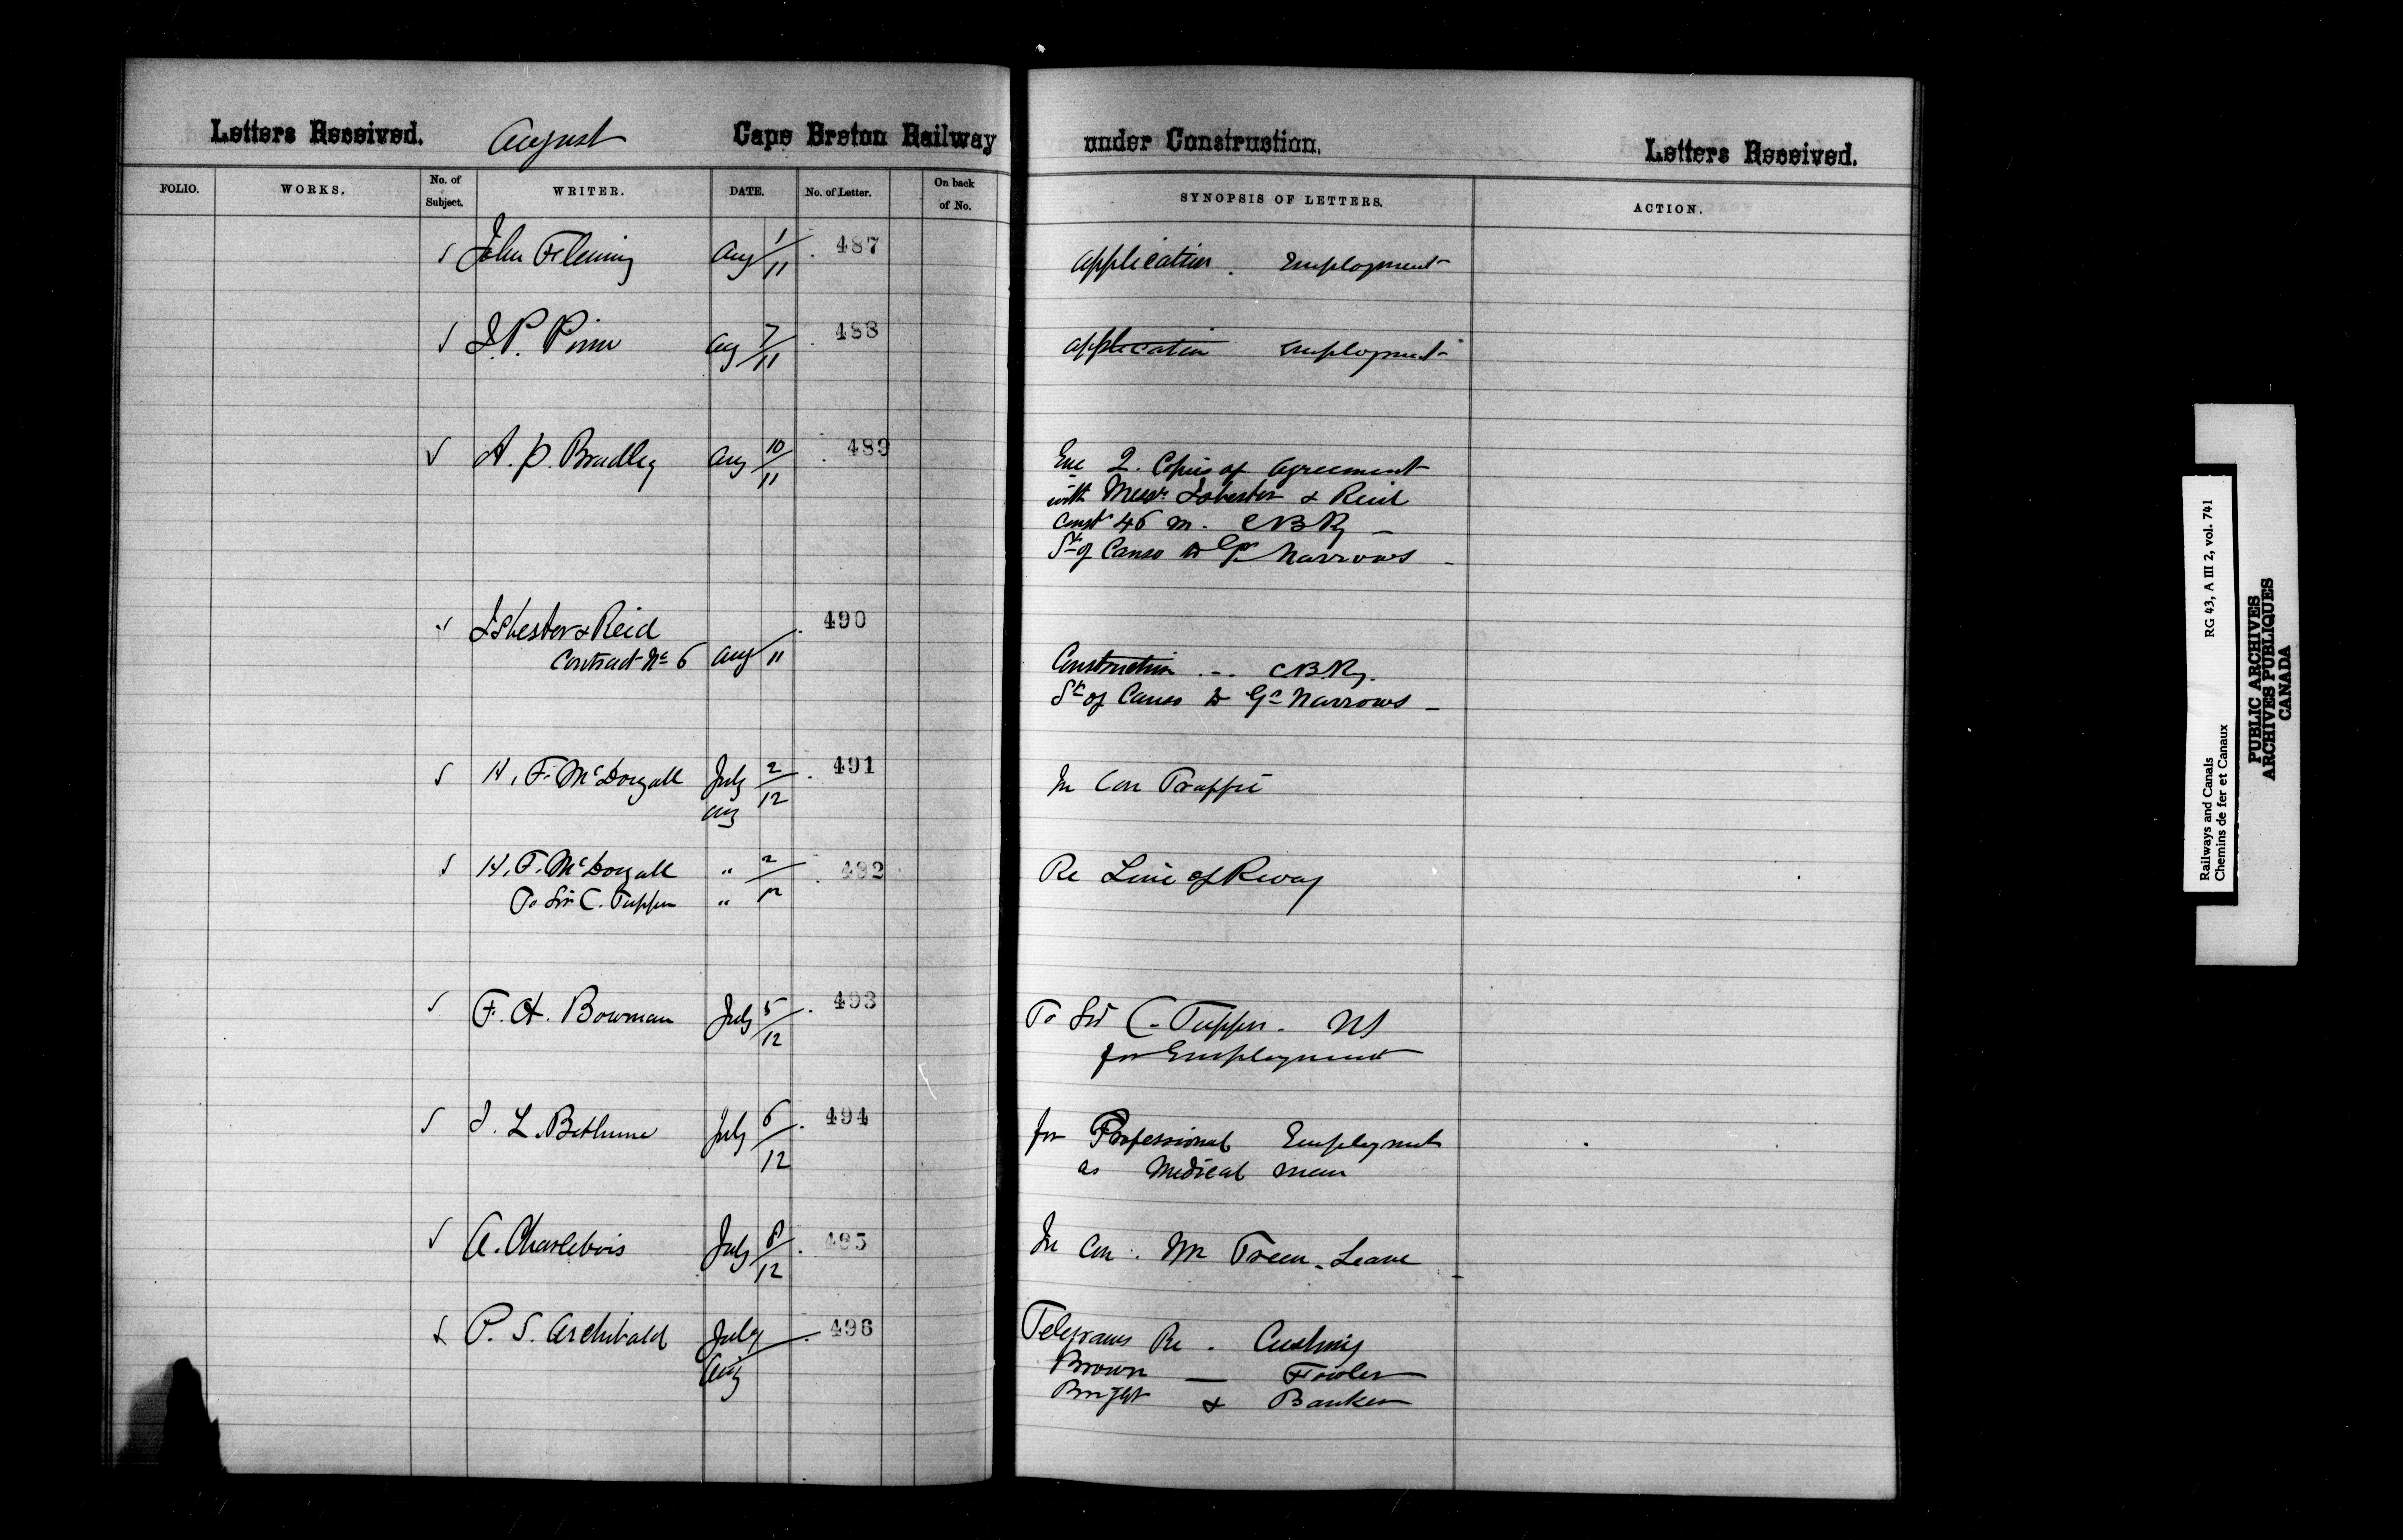 Letters Received. August Cape Breton Railway under Construction. Letters Received.
FOLIO. WORKS. No. of Subject. WRITER. DATE. No. of Letter. On back of No. SYNOPSIS OF LETTERS. ACTION.
John Fleming Aug 1/11 487 Application. Employment
J. P. Pirm Aug 7/11 488 Application Employment
A. P. Bradley Aug 10/11 489 Enc 2. Copies of Agreement
with Messrs Isbester & Reid
Const 46 m. CBRy
St of Canso to Gr Narrows
Isbester & Reid 490
Contract No 6 Aug/11 Construction - CBRy.
St of Canso to Gd Narrows
H. F. McDougall July 2/12 491 In Con Traffic
Aug
H. F. McDougall " 2/12 492 Re Line of Rway
To Sir C. Tupper "
F. A. Bowman July 5/12 493 To Sir C. Tupper. NS
for Employment
J. L. Bethune July 6/12 494 for Professional Employment
as Medical man
A. Charlebois July 8/12 495 In Con. Mr Treen. Leave
P. S. Archibald July 496 Telegrams Re. Cushing
Aug Brown — Fowler
Bright & Banker
Railways and Canals RG 43, A III 2, vol. 741
Chemins de fer et Canaux
PUBLIC ARCHIVES
ARCHIVES PUBLIQUES
CANADA